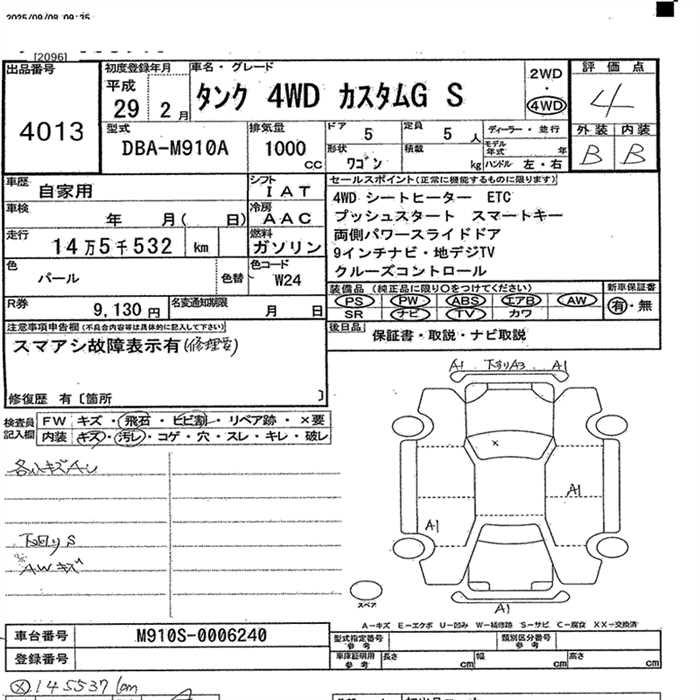 2025/09/08 09:25
[2096]
出品番号
4013
初度登録年月
平成
29 2月
車名・グレード
タンク 4WD カスタムG S
2WD
・
4WD
評価点
4
外装 内装
B B
型式
DBA-M910A
排気量
1000
CC
ドア 5
定員 5 人
形状 ワゴン
積載 kg
ディーラー・並行
モデル年式 年
ハンドル 左・右
車歴 自家用
シフト IAT
車検 年 月( 日)
冷房 AAC
走行 14万5千532 km
燃料 ガソリン
色 パール
色替
色コード W24
R券 9,130円
名変通知期限 月 日
セールスポイント(正常に機能するものに限ります)
4WD シートヒーター ETC
プッシュスタート スマートキー
両側パワースライドドア
9インチナビ・地デジTV
クルーズコントロール
装備品 (純正品に限り○をつけてください)
PS PW ABS エアB AW
SR ナビ TV カワ
新車保証書
有・無
後日品 保証書・取説・ナビ取説
注意事項申告欄(不具合内容等は具体的に記入して下さい)
スマアシ故障表示有(修理要)
修復歴 有〔箇所 〕
検査員
記入欄
FW キズ・飛石・ヒビ割・リペア跡・×要
内装 キズ・汚レ・コゲ・穴・スレ・キレ・破レ
下回りS
AWキズ
A1 下回りA3 A1
A1
A1
A1
スペア
A－キズ E－エクボ U－凹み W－補修跡 S－サビ C－腐食 XX－交換済
車台番号 M910S-0006240
登録番号
型式指定番号
参考
類別区分番号
参考
車庫証明用
参考
長さ cm 幅 cm 高さ cm
145537km